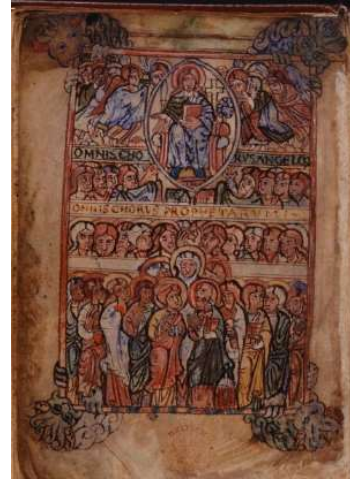 OMNIS CHO RVS ANGELOR
OMNIS CHORVS PROPHETARVM